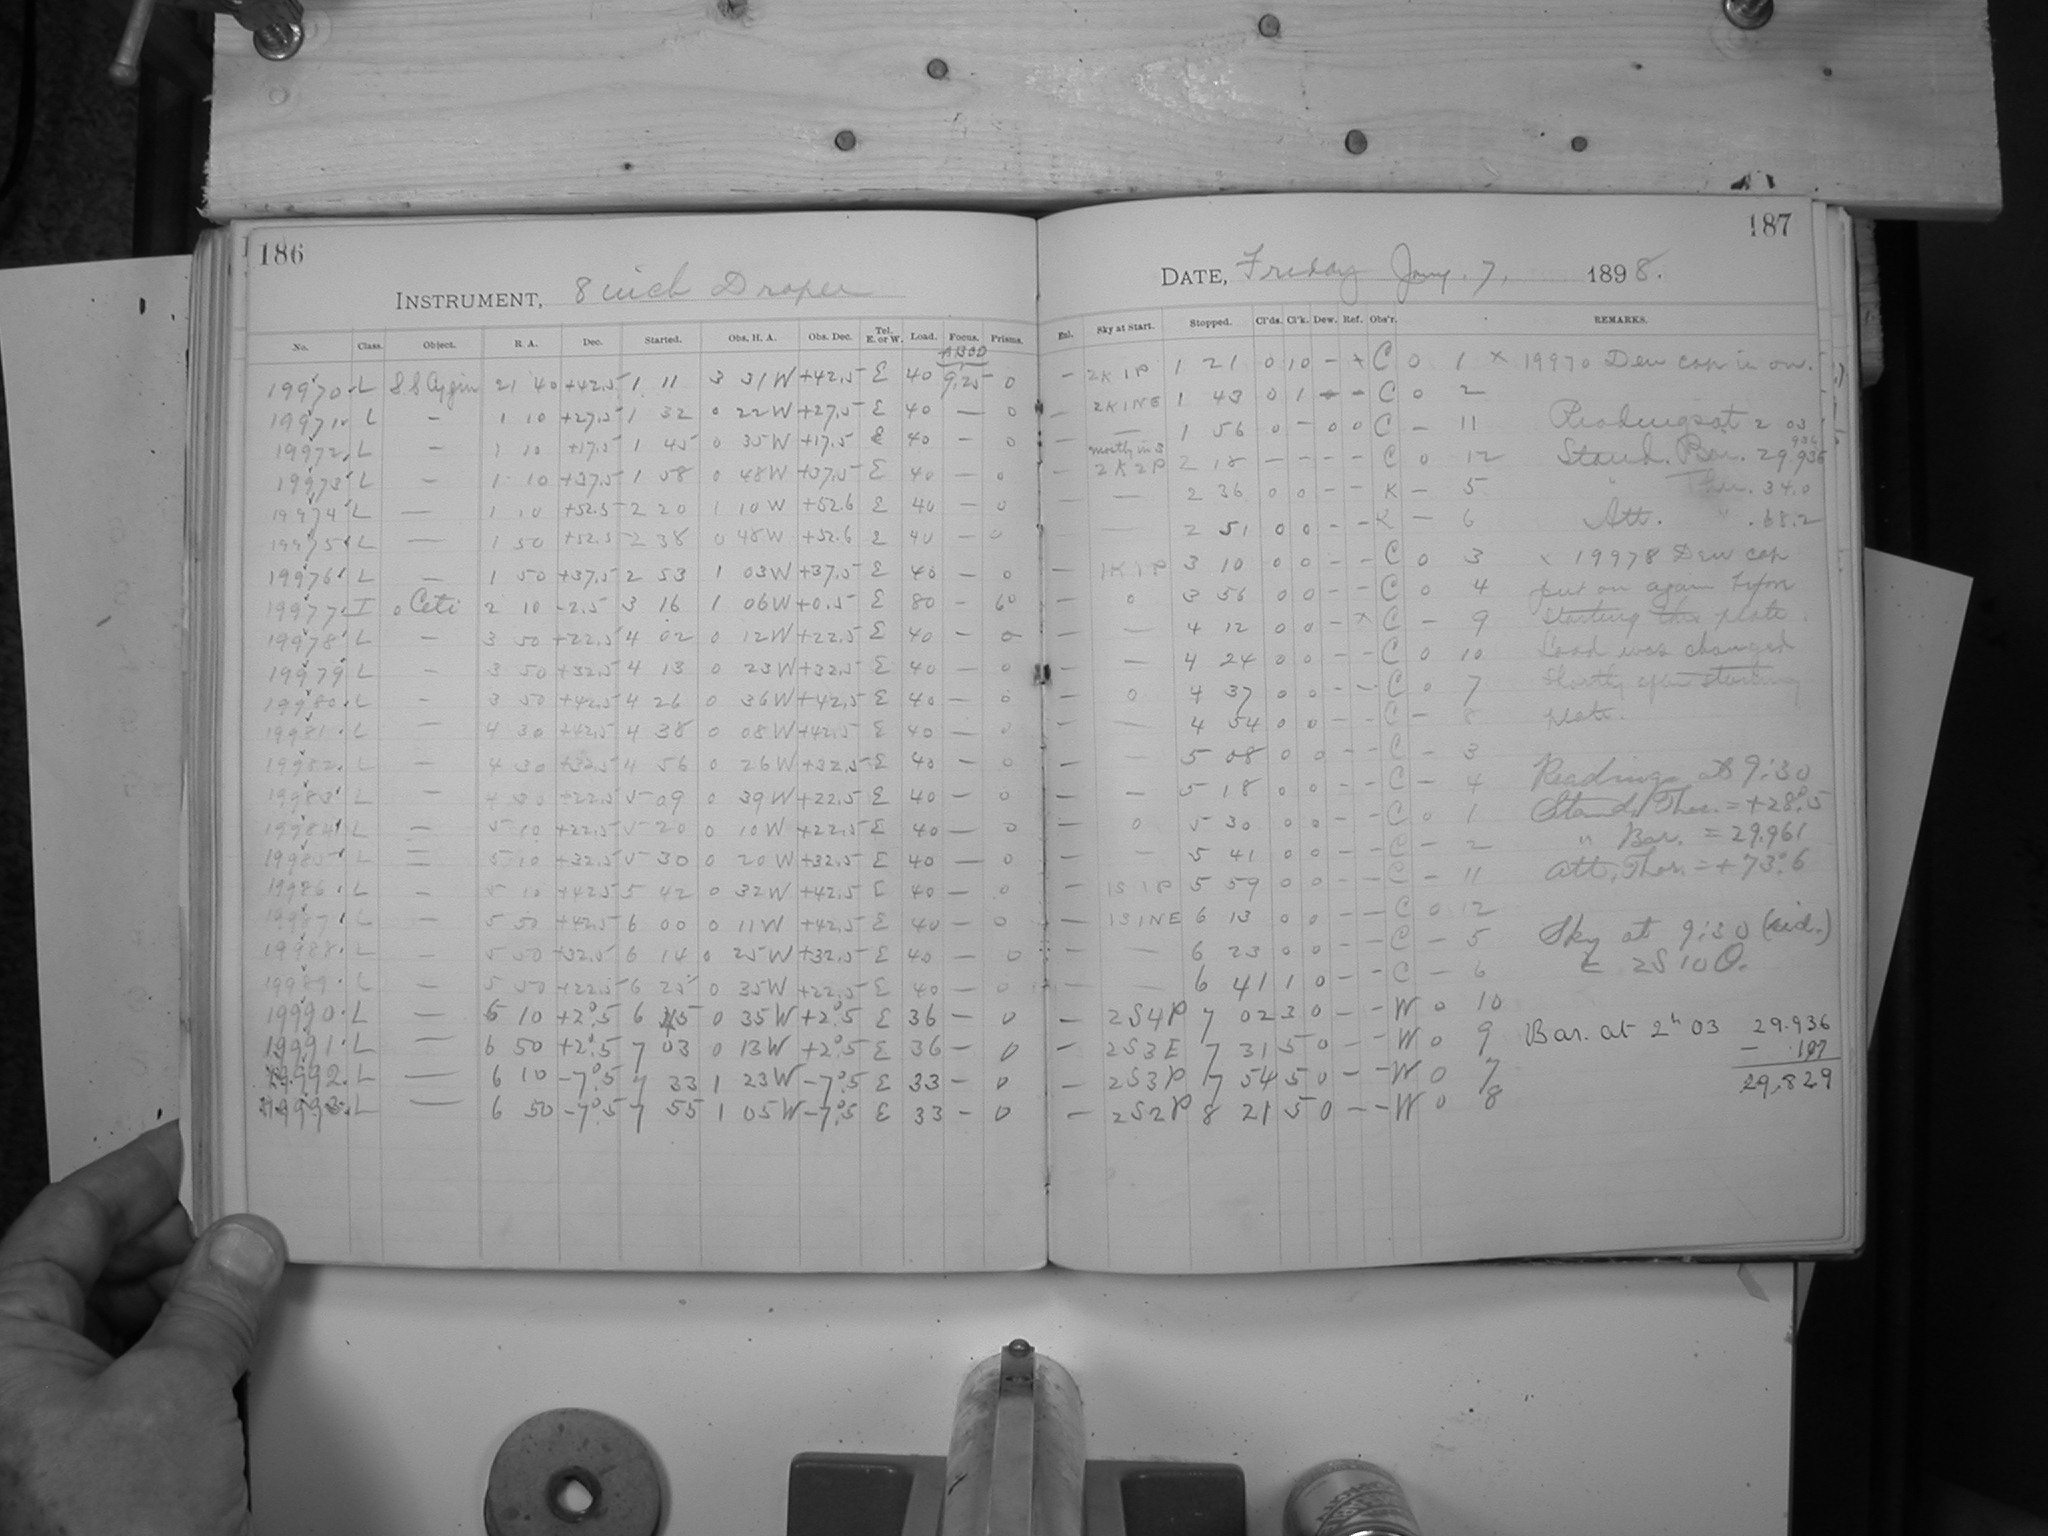 186
INSTRUMENT, 8 inch Draper
No. Class. Object. R. A. Dec. Started. Obs. H. A. Obs. Dec. Tel. E. or W. Load. Focus. Prisms.
19970 L S S Cygni 21 40 +42.5 1 11 3 31 W +42.5 E 40 9.25 0
19971 L — 1 10 +27.5 1 32 0 22 W +27.5 E 40 — 0
19972 L — 1 10 +17.5 1 45 0 35 W +17.5 E 40 — 0
19973 L — 1 10 +37.5 1 58 0 48 W +37.5 E 40 — 0
19974 L — 1 10 +52.5 2 20 1 10 W +52.6 E 40 — 0
19975 L — 1 50 +52.5 2 38 0 48 W +52.6 E 40 — 0
19976 L — 1 50 +37.5 2 53 1 03 W +37.5 E 40 — 0
19977 I o Ceti 2 10 -2.5 3 16 1 06 W +0.5 E 80 — 6°
19978 L — 3 50 +22.5 4 02 0 12 W +22.5 E 40 — 0
19979 L — 3 50 +32.5 4 13 0 23 W +32.5 E 40 — 0
19980 L — 3 50 +42.5 4 26 0 36 W +42.5 E 40 — 0
19981 L — 4 30 +42.5 4 38 0 08 W +42.5 E 40 — 0
19982 L — 4 30 +32.5 4 56 0 26 W +32.5 E 40 — 0
19983 L — 4 30 +22.5 5 09 0 39 W +22.5 E 40 — 0
19984 L — 5 10 +22.5 5 20 0 10 W +22.5 E 40 — 0
19985 L — 5 10 +32.5 5 30 0 20 W +32.5 E 40 — 0
19986 L — 5 10 +42.5 5 42 0 32 W +42.5 E 40 — 0
19987 L — 5 50 +42.5 6 00 0 11 W +42.5 E 40 — 0
19988 L — 5 50 +32.5 6 14 0 25 W +32.5 E 40 — 0
19989 L — 5 50 +22.5 6 25 0 35 W +22.5 E 40 — 0
19990 L — 6 10 +2°.5 6 45 0 35 W +2°.5 E 36 — 0
19991 L — 6 50 +2°.5 7 03 0 13 W +2°.5 E 36 — 0
19992 L — 6 10 -7°.5 7 33 1 23 W -7°.5 E 33 — 0
19993 L — 6 50 -7°.5 7 55 1 05 W -7°.5 E 33 — 0
187
DATE, Friday Jany. 7, 1898.
Enl. Sky at Start. Stopped. Cl'ds. Cl'k. Dew. Ref. Obs'r. REMARKS.
— 2K1P 1 21 0 10 - x C 0 1 x 19970 Dew cap is on.
— 2K1NE 1 43 0 1 - - C 0 2
— — 1 56 0 - 0 0 C — 11 Readings at 2 03
mostly in S
2K2P 2 18 - - - - C 0 12 Stand. Bar. 29.936
— — 2 36 0 0 - - K — 5 " Ther. 34.0
— 2 51 0 0 - - K — 6 Att. " 68.2
— 1K1P 3 10 0 0 - - C 0 3 x 19978 Dew cap
— 0 3 56 0 0 - - C 0 4 put on again before
— — 4 12 0 0 - x C — 9 starting this plate.
— — 4 24 0 0 - - C 0 10 Load was changed
— 0 4 37 0 0 - - C 0 7 shortly after starting
— — 4 54 0 0 - - C — 8 plate.
— — 5 08 0 0 - - C — 3
— — 5 18 0 0 - - C — 4 Readings at 9:30
— 0 5 30 0 0 - - C 0 1 Stand. Ther. = +28°.5
— — 5 41 0 0 - - C — 2 " Bar. = 29.961
— 1S1P 5 59 0 0 - - C — 11 Att. Ther. = +73°.6
— 1S1NE 6 13 0 0 - - C 0 12
— — 6 23 0 0 - - C — 5 Sky at 9:30 (sid.)
— — 6 41 1 0 - - C — 6 = 2S100.
— 2S4P 7 02 3 0 - - W 0 10
— 2S3E 7 31 5 0 - - W 0 9 Bar. at 2h 03 29.936
— 2S3P 7 54 5 0 - - W 0 7 — .107
— 2S2P 8 21 5 0 - - W 0 8 29.829